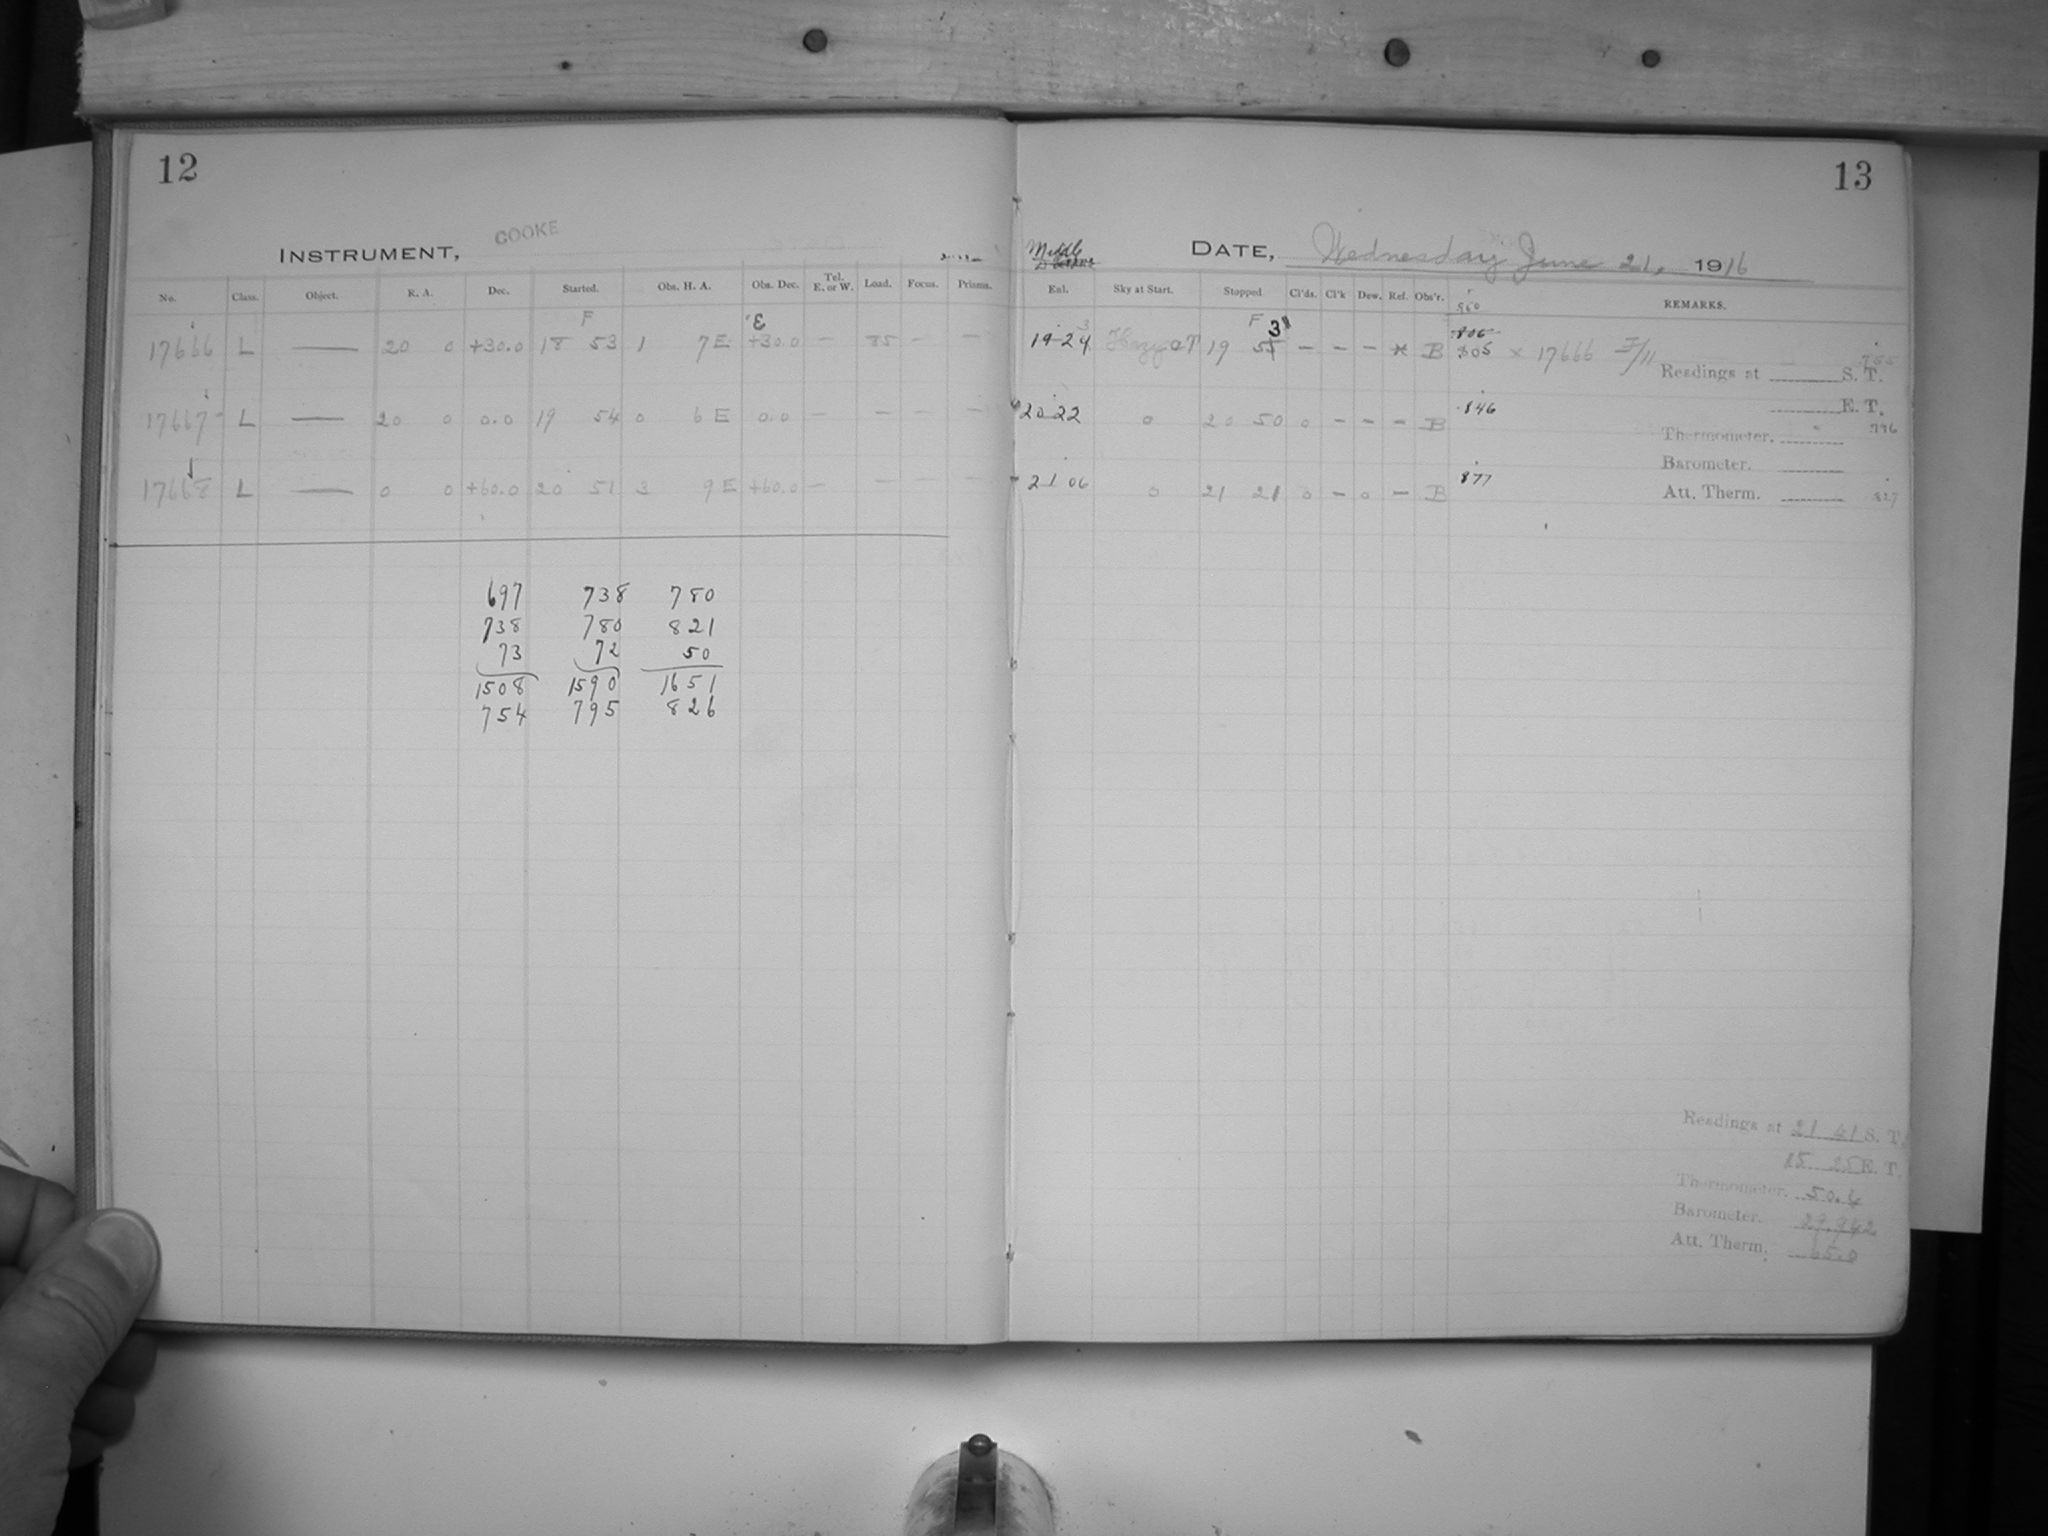 12
INSTRUMENT, COOKE
No. Class. Object. R. A. Dec. Started. Obs. H. A. Obs. Dec. Tel. E. or W. Load. Focus. Prisms.
F
17666 L — 20 0 +30.0 18 53 1 7 E +30.0 — 85 — —
17667 L — 20 0 0.0 19 54 0 6 E 0.0 — — — —
17668 L — 0 0 +60.0 20 51 3 9 E +60.0 — — — —
697 738 780
738 780 821
73 72 50
1508 1590 1651
754 795 826
13
Middle
DATE, Wednesday June 21, 1916
Exl. Sky at Start. Stopped. Cl'ds. Cl'k Dew. Ref. Obs'r. REMARKS.
F 3
19 24 Hazy 19 55 — — — * B 805 × 17666
Readings at S. T.
E. T.
20 22 0 20 50 0 — — — B .846
Thermometer. 796
Barometer.
21 06 0 21 21 0 — 0 — B 877
Att. Therm. 827
Readings at 21 41 S. T.
15 25 E. T.
Thermometer. 50.4
Barometer. 29.942
Att. Therm. 65.0